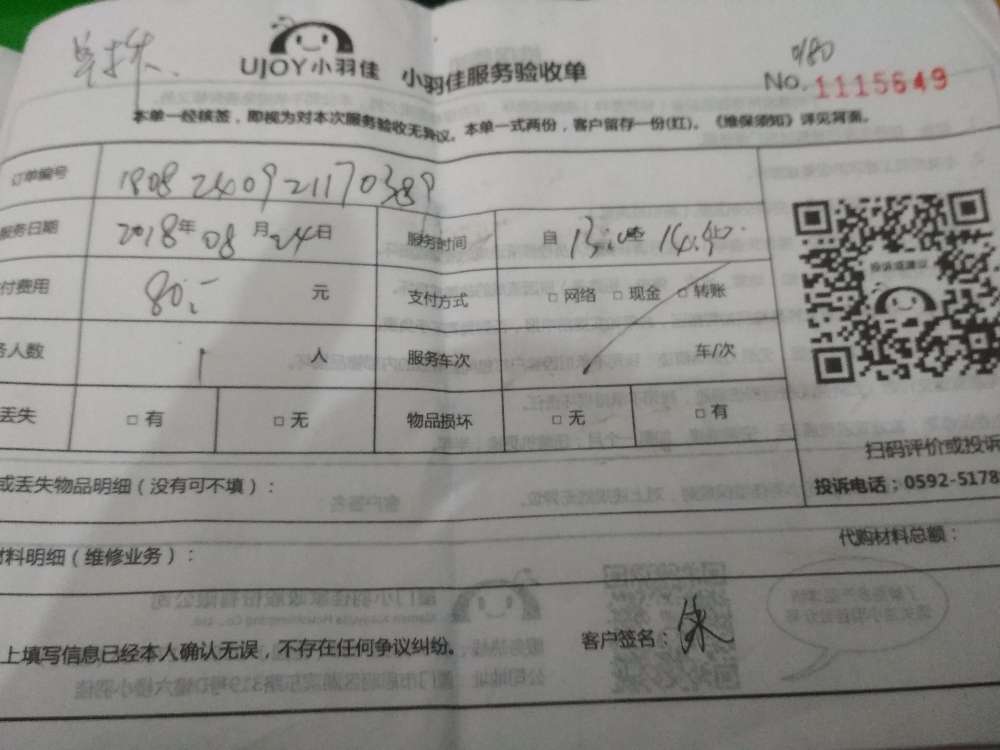 UJOY小羽佳 小羽佳服务验收单
No. 1115649
本单一经核签，即视为对本次服务验收无异议。本单一式两份，客户留存一份(红)。《维保须知》详见背面。
订单编号 1808240921170389
服务日期 2018年08月24日 服务时间 自
付费用 80.- 元 支付方式 □ 网络 □ 现金 □ 转账
务人数 1 人 服务车次 车/次
丢失 □ 有 □ 无 物品损坏 □ 无 □ 有
扫码评价或投诉
投诉电话：0592-5178
或丢失物品明细（没有可不填）：
材料明细（维修业务）： 代购材料总额：
上填写信息已经本人确认无误，不存在任何争议纠纷。 客户签名：朱